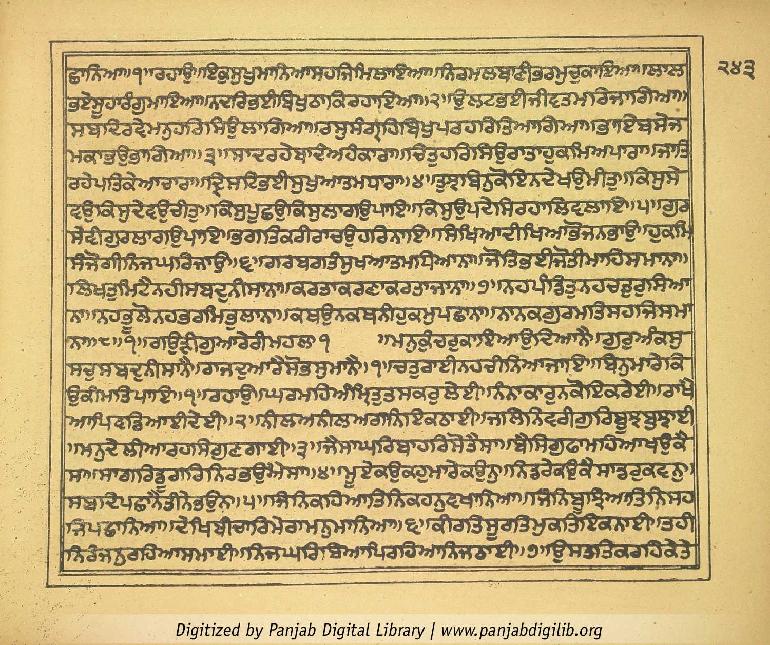 ਛਾਨਿਆ॥੧॥ਰਹਾਉ॥ਇਕੁਸੁਖੁਮਾਨਿਆਸਹਜਿਮਿਲਾਇਆ॥ਨਿਰਮਲਬਾਣੀਭਰਮੁਚੁਕਾਇਆ॥ਲਾਲ
੨੪੩
ਭਏਸੂਹਾਰੰਗੁਮਾਇਆ॥ਨਦਰਿਭਈਬਿਖੁਠਾਕਿਰਹਾਇਆ॥੨॥ਉਲਟਭਈਜੀਵਤਮਰਿਜਾਗਿਆ॥
ਸਬਦਿਰਵੇਮਨੁਹਰਿਸਿਉਲਾਗਿਆ॥ਰਸੁਸੰਗ੍ਰਹਿਬਿਖੁਪਰਹਰਿਤਿਆਗਿਆ॥ਭਾਇਬਸੇਜ
ਮਕਾਭਉਭਾਗਿਆ॥੩॥ਸਾਦਰਹੇਬਾਦੰਅਹੰਕਾਰਾ॥ਚਿਤੁਹਰਿਸਿਉਰਾਤਾਹੁਕਮਿਅਪਾਰਾ॥ਜਾਤਿ
ਰਹੇਪਤਿਕੇਆਚਾਰਾ॥ਦ੍ਰਿਸਟਿਭਈਸੁਖੁਆਤਮਧਾਰਾ॥੪॥ਤੁਝਬਿਨੁਕੋਇਨਦੇਖਉਮੀਤੁ॥ਕਿਸੁਸੇ
ਵਉਕਿਸੁਦੇਵਉਚੀਤੁ॥ਕਿਸੁਪੂਛਉਕਿਸੁਲਾਗਉਪਾਇ॥ਕਿਸੁਉਪਦੇਸਿਰਹਾਲਿਵਲਾਇ॥੫॥ਗੁਰ
ਸੇਵੀਗੁਰਲਾਗਉਪਾਇ॥ਭਗਤਿਕਰੀਰਾਚਉਹਰਿਨਾਇ॥ਸਿਖਿਆਦੀਖਿਆਭੋਜਨਭਾਉ॥ਹੁਕਮਿ
ਸੰਜੋਗੀਨਿਜਘਰਿਜਾਉ॥੬॥ਗਰਬਗਤੰਸੁਖਆਤਮਧਿਆਨਾ॥ਜੋਤਿਭਈਜੋਤੀਮਾਹਿਸਮਾਨਾ॥
ਲਿਖਤੁਮਿਟੈਨਹੀਸਬਦੁਨੀਸਾਨਾ॥ਕਰਤਾਕਰਣਾਕਰਤਾਜਾਨਾ॥੭॥ਨਹਪੰਡਿਤੁਨਹਚਤੁਰੁਸਿਆ
ਨਾ॥ਨਹਭੂਲੋਨਹਭਰਮਿਭੁਲਾਨਾ॥ਕਥਉਨਕਥਨੀਹੁਕਮੁਪਛਾਨਾ॥ਨਾਨਕਗੁਰਮਤਿਸਹਜਿਸਮਾ
ਨਾ॥੮॥੧॥ਗਉੜੀਗੁਆਰੇਰੀਮਹਲਾ ੧ ॥ਮਨੁਕੁੰਚਰੁਕਾਇਆਉਦਿਆਨੈ॥ਗੁਰੁਅੰਕਸੁ
ਸਚੁਸਬਦੁਨੀਸਾਨੈ॥ਰਾਜਦੁਆਰੈਸੋਭਸੁਮਾਨੈ॥੧॥ਚਤੁਰਾਈਨਹਚੀਨਿਆਜਾਇ॥ਬਿਨੁਮਾਰੇਕਿ
ਉਕੀਮਤਿਪਾਇ॥੧॥ਰਹਾਉ॥ਘਰਮਹਿਅੰਮ੍ਰਿਤੁਤਸਕਰੁਲੇਈ॥ਨੰਨਾਕਾਰੁਨਕੋਇਕਰੇਈ॥ਰਾਖੈ
ਆਪਿਵਡਿਆਈਦੇਈ॥੨॥ਨੀਲਅਨੀਲਅਗਨਿਇਕਠਾਈ॥ਜਲਿਨਿਵਰੀਗੁਰਿਬੂਝਬੁਝਾਈ
॥ਮਨੁਦੇਲੀਆਰਹਸਿਗੁਣਗਾਈ॥੩॥ਜੈਸਾਘਰਿਬਾਹਰਿਸੋਤੈਸਾ॥ਬੈਸਿਗੁਫਾਮਹਿਆਖਉਕੈ
ਸਾ॥ਸਾਗਰਿਡੂਗਰਿਨਿਰਭਉਐਸਾ॥੪॥ਮੂਏਕਉਕਹੁਮਾਰੇਕਉਨੁ॥ਨਿਡਰੇਕਉਕੈਸਾਡਰੁਕਵਨੁ॥
ਸਬਦਿਪਛਾਨੈਤੀਨੇਭਉਨ॥੫॥ਜਿਨਿਕਹਿਆਤਿਨਿਕਹਨੁਵਖਾਨਿਆ॥ਜਿਨਿਬੂਝਿਆਤਿਨਿਸਹ
ਜਿਪਛਾਨਿਆ॥ਦੇਖਿਬੀਚਾਰਿਮੇਰਾਮਨੁਮਾਨਿਆ॥੬॥ਕੀਰਤਿਸੂਰਤਿਮੁਕਤਿਇਕਨਾਈ॥ਤਹੀ
ਨਿਰੰਜਨੁਰਹਿਆਸਮਾਈ॥ਨਿਜਘਰਿਬਿਆਪਿਰਹਿਆਨਿਜਠਾਈ॥੭॥ਉਸਤਤਿਕਰਹਿਕੇਤੇ
Digitized by Panjab Digital Library | www.panjabdigilib.org